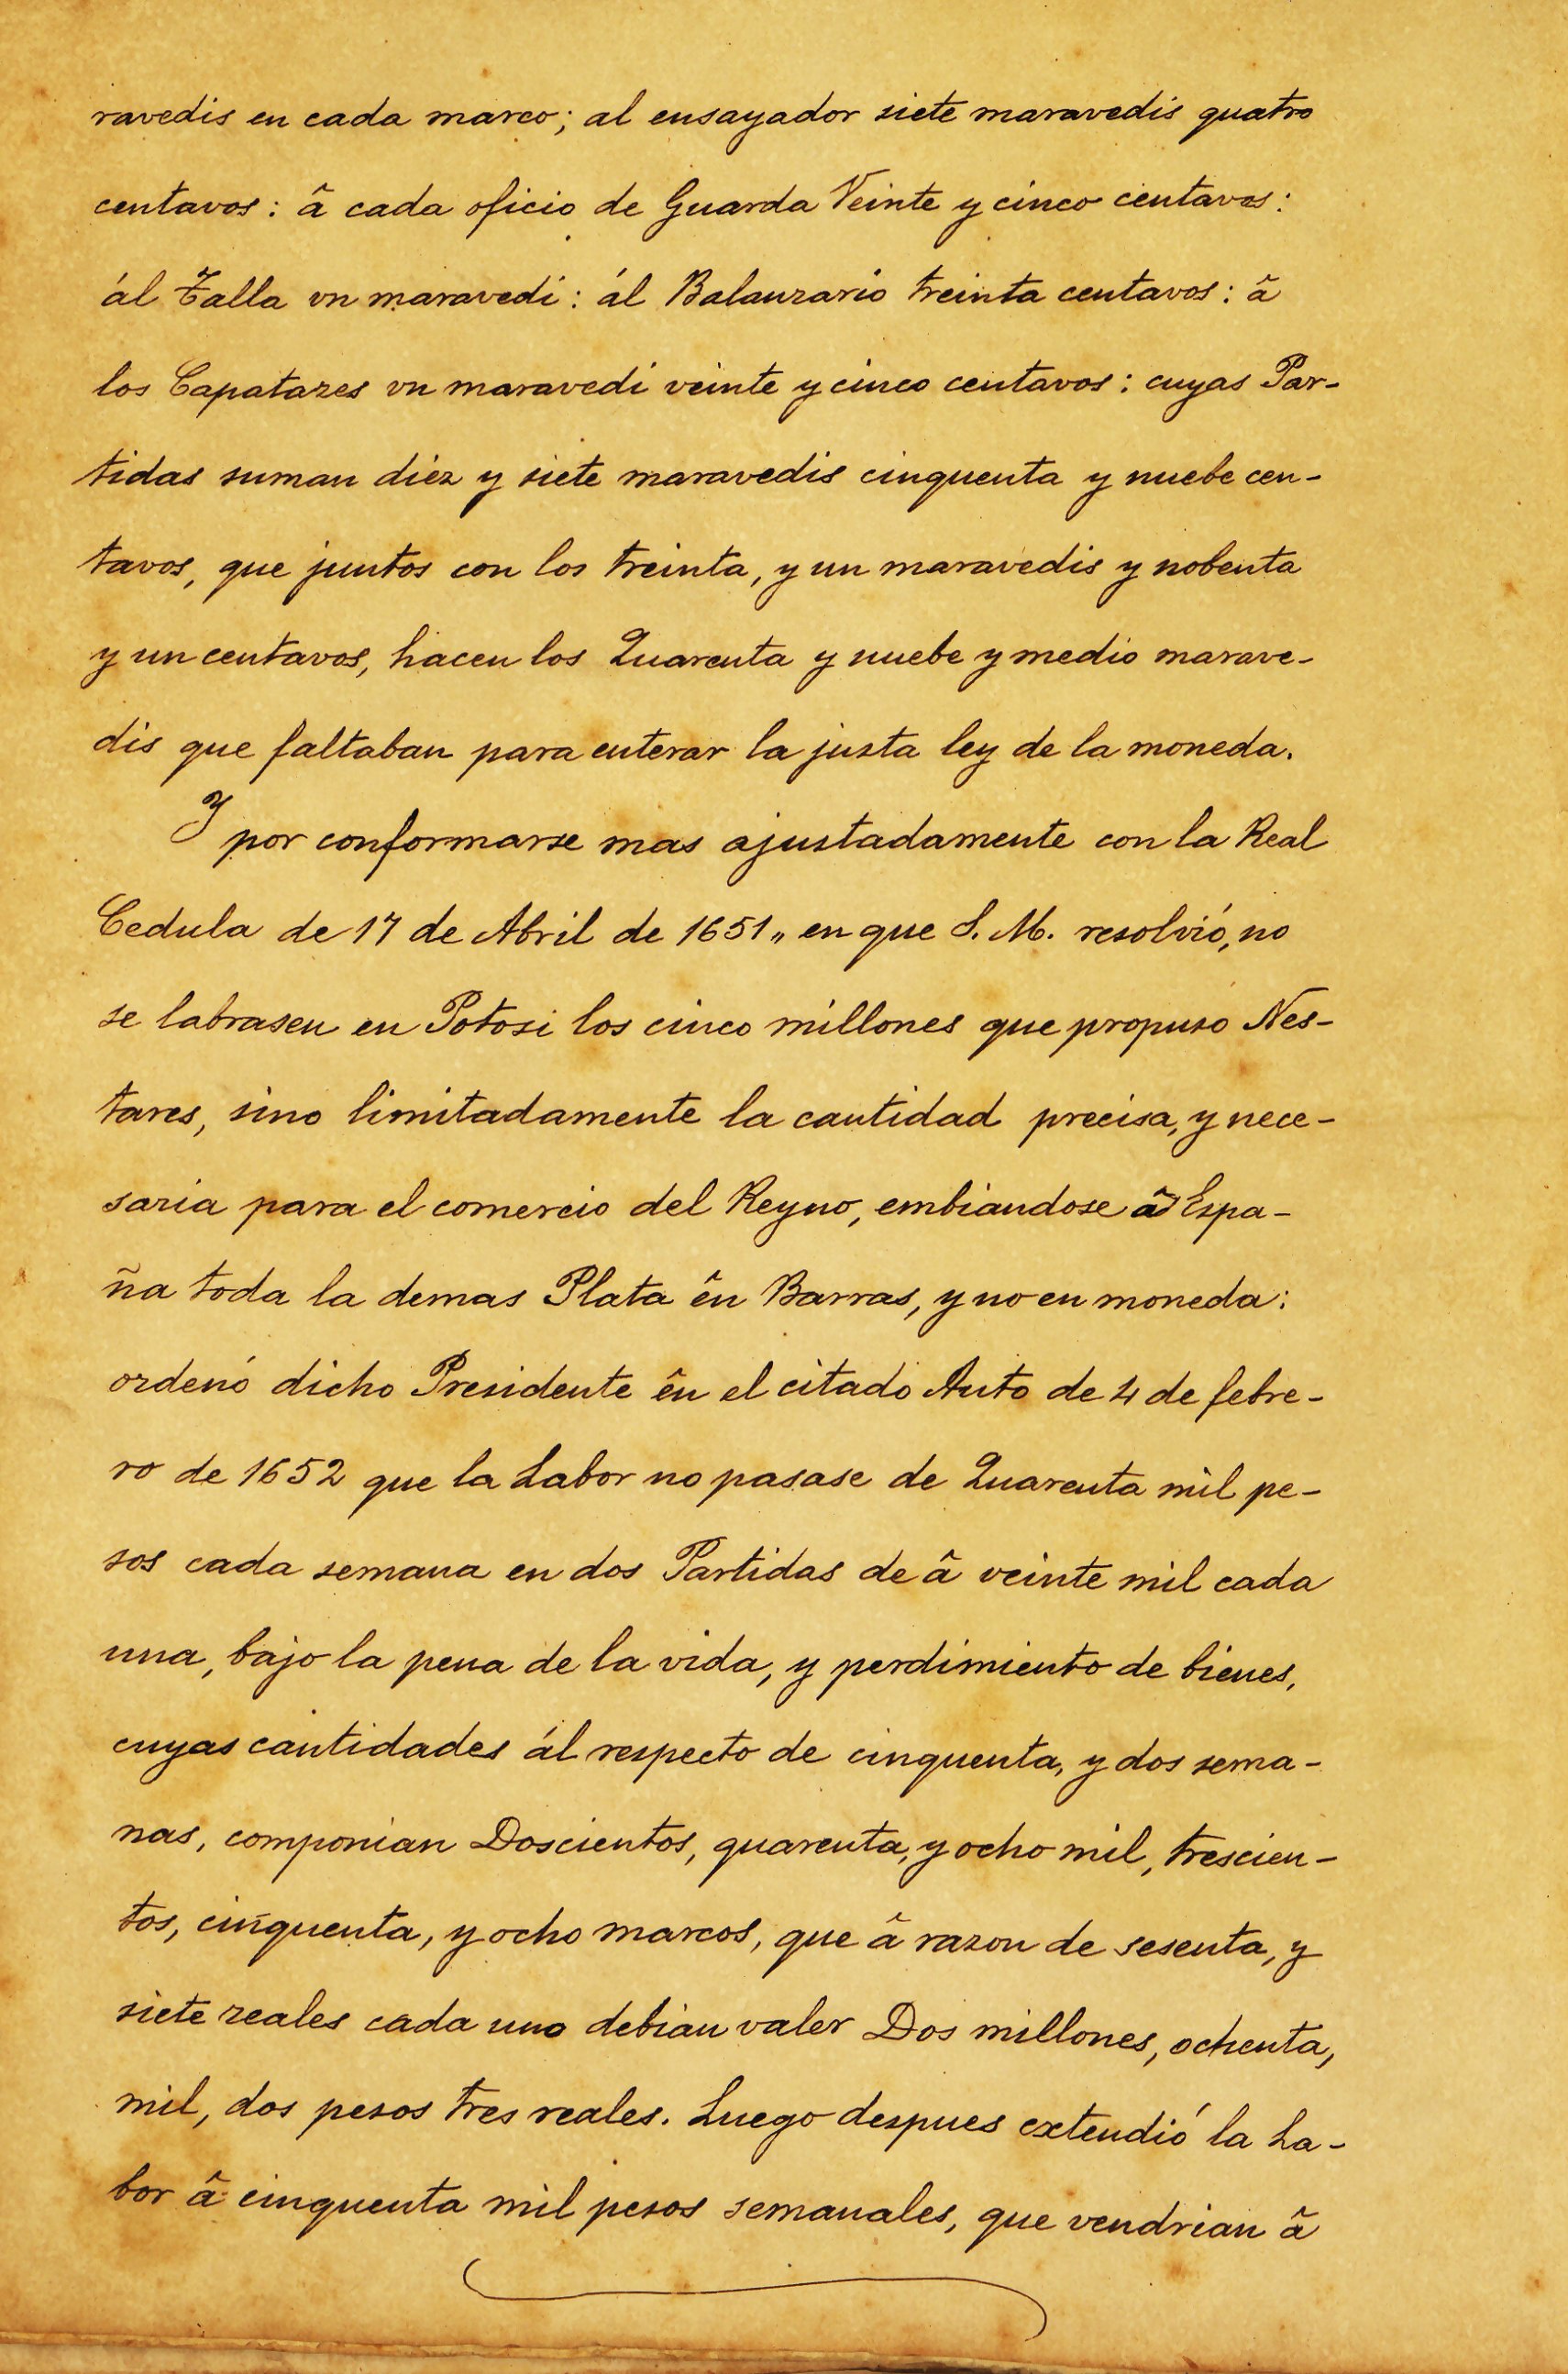 ravedis en cada marco; al ensayador siete maravedis quatro
centavos: â cada oficio de Guarda Veinte y cinco centavos:
ál Talla vn maravedi: ál Balanzario treinta centavos: â
los Capatazes vn maravedi veinte y cinco centavos: cuyas Par-
tidas suman diez y siete maravedis cinquenta y nuebe cen-
tavos, que juntos con los treinta, y un maravedis y nobenta
y un centavos, hacen los Quarenta y nuebe y medio marave-
dis que faltaban para enterar la justa ley de la moneda.
Y por conformarse mas ajustadamente con la Real
Cedula de 17 de Abril de 1651,, en que S. M. resolvió, no
se labrasen en Potosi los cinco millones que propuso Nes-
tares, sino limitadamente la cantidad precisa, y nece-
saria para el comercio del Reyno, embiandose â Espa-
ña toda la demas Plata ên Barras, y no en moneda:
ordenó dicho Presidente ên el citado Auto de 4 de febre-
ro de 1652 que la Labor no pasase de Quarenta mil pe-
sos cada semana en dos Partidas de â veinte mil cada
una, bajo la pena de la vida, y perdimiento de bienes,
cuyas cantidades ál respecto de cinquenta, y dos sema-
nas, componian Doscientos, quarenta, y ocho mil, trescien-
tos, cinquenta, y ocho marcos, que â razon de sesenta, y
siete reales cada uno debian valer Dos millones, ochenta,
mil, dos pesos tres reales. Luego despues extendió la La-
bor â cinquenta mil pesos semanales, que vendrian â